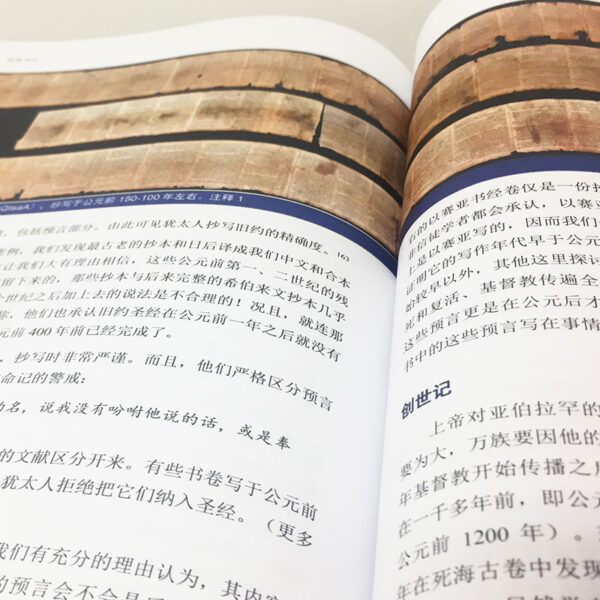 QIsaA），抄写于公元前 150-100 年左右。注释 1
包括预言部分，由此可见犹太人抄写旧约的精确度。163
我们发现最古老的抄本和日后译成我们中文和合本
让我们大有理由相信，这些公元前第一、二世纪的残
留下来的，那些抄本与后来完整的希伯来文抄本几乎
世纪之后加上去的说法是不合理的！况且，就连那
他们也承认旧约圣经在公元前一年之后就没有
元前 400 年前已经完成了。
抄写时非常严谨。而且，他们严格区分预言
命记的警戒：
名，说我没有吩咐他说的话，或是奉
的文献区分开来。有些书卷写于公元前
犹太人拒绝把它们纳入圣经。（更多
我们有充分的理由认为，其内容
的预言会不会是
右的以赛亚书经卷仅是一份抄
非信徒学者都会承认，以赛
上是以赛亚写的，因而我们
证明它的写作年代早于公元
始较早以外，其他这里探讨
死和复活、基督教传遍全
这些预言更是在公元后才
书中的这些预言写在事情
创世记
上帝对亚伯拉罕的
要为大，万族要因他的
年基督教开始传播之后
在一千多年前，即公元
公元前 1200 年）。
年在死海古卷中发现